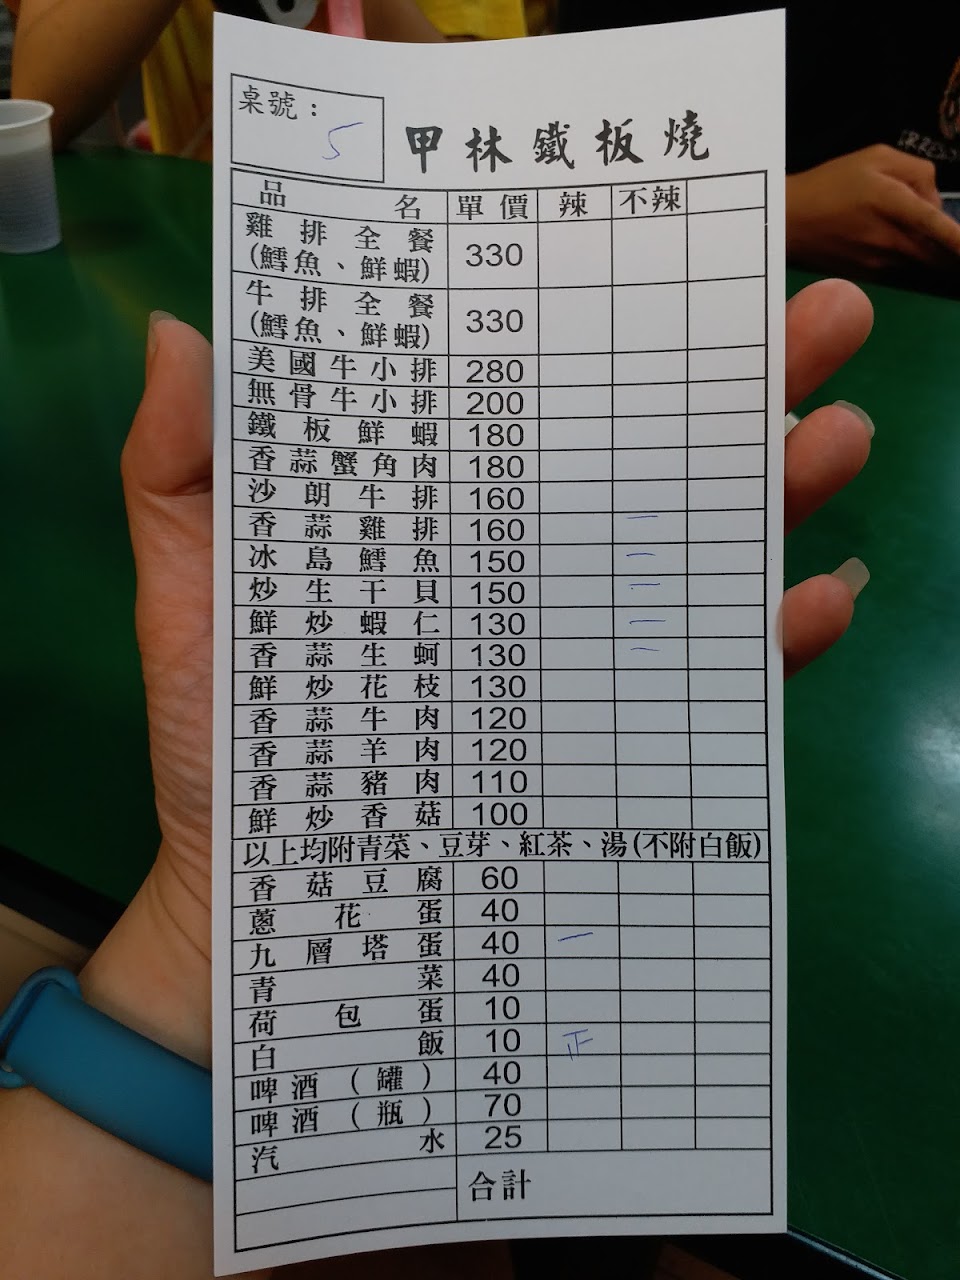 桌號：
5
甲林鐵板燒
品名 單價 辣 不辣
雞排全餐
(鱈魚、鮮蝦) 330
牛排全餐
(鱈魚、鮮蝦) 330
美國牛小排 280
無骨牛小排 200
鐵板鮮蝦 180
香蒜蟹角肉 180
沙朗牛排 160
香蒜雞排 160 一
冰島鱈魚 150 一
炒生干貝 150 一
鮮炒蝦仁 130 一
香蒜生蚵 130 一
鮮炒花枝 130
香蒜牛肉 120
香蒜羊肉 120
香蒜豬肉 110
鮮炒香菇 100
以上均附青菜、豆芽、紅茶、湯(不附白飯)
香菇豆腐 60
蔥花蛋 40
九層塔蛋 40 一
青菜 40
荷包蛋 10
白飯 10 正
啤酒(罐) 40
啤酒(瓶) 70
汽水 25
合計